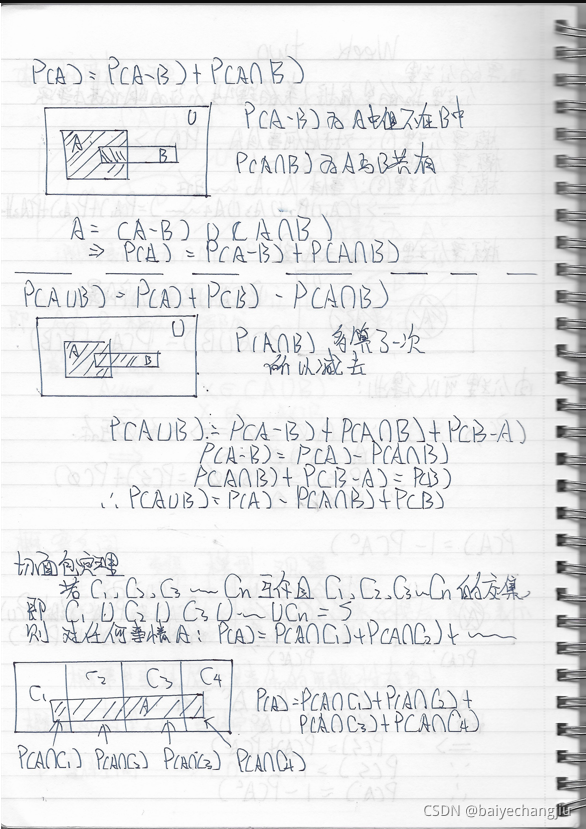 P(A) = P(A-B) + P(A∩B)
U
A
B
P(A-B) 为 A中但不在B中
P(A∩B) 为A与B共有
A = (A-B) ∪ (A∩B)
⇒ P(A) = P(A-B) + P(A∩B)
P(A∪B) = P(A) + P(B) - P(A∩B)
U
A
B
P(A∩B) 多算了一次
所以减去
P(A∪B) = P(A-B) + P(A∩B) + P(B-A)
P(A-B) = P(A) - P(A∩B)
P(A∩B) + P(B-A) = P(B)
∴ P(A∪B) = P(A) - P(A∩B) + P(B)
切面包定理
若 C1, C2, C3 ~ Cn 互斥且 C1, C2, C3 ~ Cn 的
即 C1 ∪ C2 ∪ C3 ∪ ~ ∪ Cn = S
则 对任何事情A: P(A) = P(A∩C1) + P(A∩C2) + ~
C1
C2
C3
C4
A
P(A) = P(A∩C1) + P(A∩C2) +
P(A∩C3) + P(A∩C4)
P(A∩C1) P(A∩C2) P(A∩C3) P(A∩C4)
CSDN @baiyechangjiu